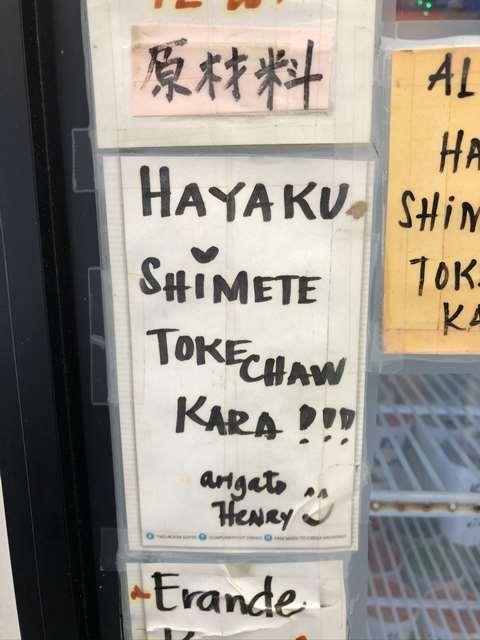 原材料
HAYAKU
SHIMETE
TOKE
CHAW
KARA !!!
arigato
HENRY
TWO-ROOM SUITES
Erande
AL
HA
SHIM
TOK
KA